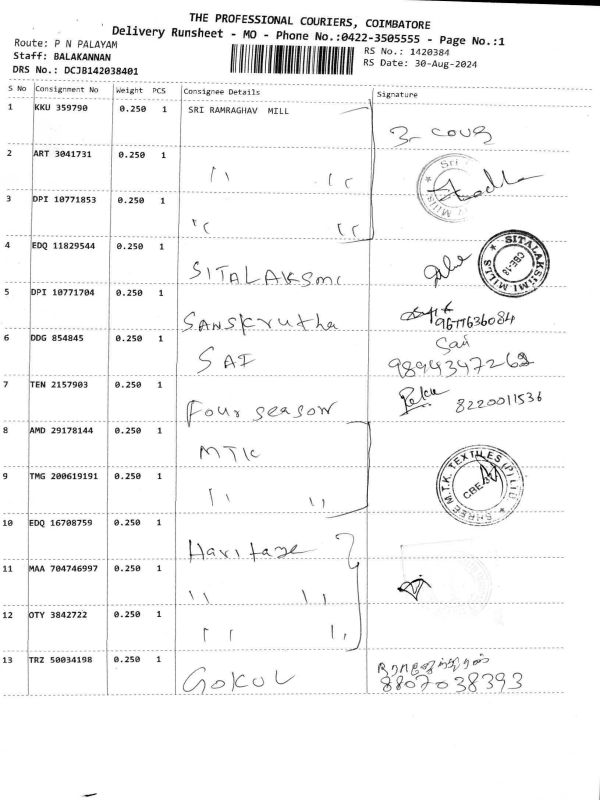 THE PROFESSIONAL COURIERS, COIMBATORE
Delivery Runsheet - MO - Phone No.:0422-3505555 - Page No.:1
Route: P N PALAYAM
Staff: BALAKANNAN
DRS No.: DCJB142038401
RS No.: 1420384
RS Date: 30-Aug-2024
S No Consignment No Weight PCS Consignee Details Signature
1 KKU 359790 0.250 1 SRI RAMRAGHAV MILL
3- COUR
2 ART 3041731 0.250 1 " "
Sri
MILLS
3 DPI 10771853 0.250 1 " "
4 EDQ 11829544 0.250 1 SITALAKSMI
SITALAKSHMI MILLS
CBE-18
5 DPI 10771704 0.250 1 SANSKrutha 9677636084
6 DDG 854845 0.250 1 SAI Sai
9894347262
7 TEN 2157903 0.250 1 Four season 8220011536
8 AMD 29178144 0.250 1 MTK
SHREE M.T.K. TEXTILES (P) LTD.
CBE
9 TMG 200619191 0.250 1 " "
10 EDQ 16708759 0.250 1 Haritage
11 MAA 704746997 0.250 1 " "
12 OTY 3842722 0.250 1 " "
13 TRZ 50034198 0.250 1 GOKUL
8807038393